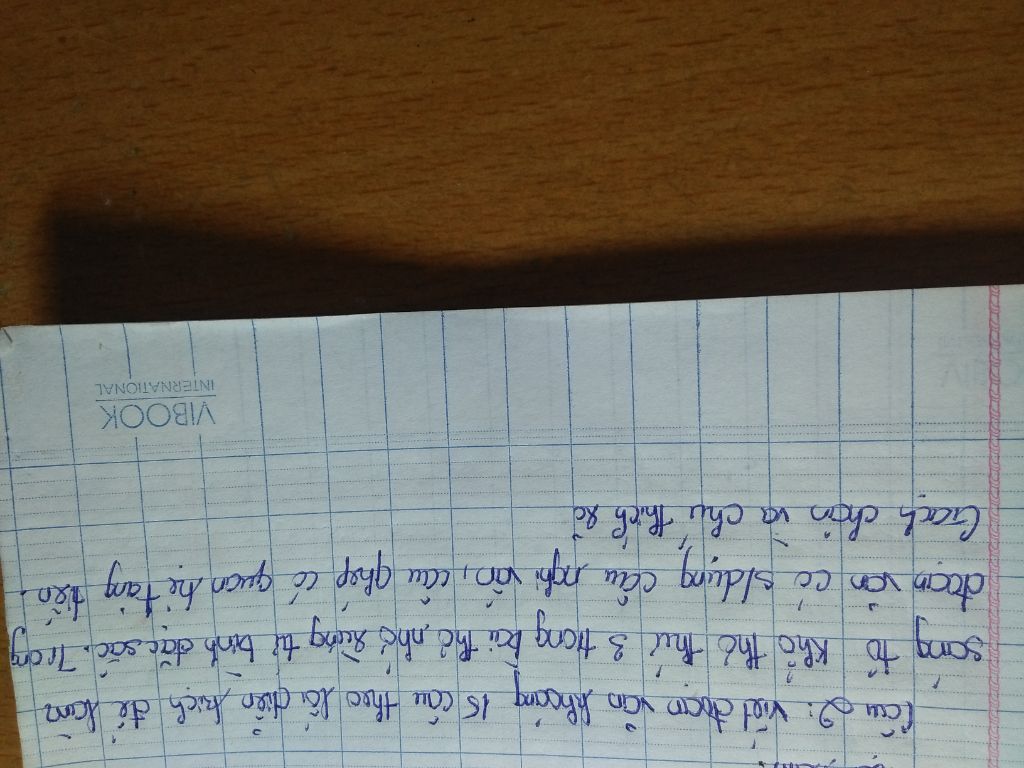 Câu 2: Viết đoạn văn khoảng 15 câu theo lối diễn dịch để làm
sáng tỏ khổ thơ thứ 3 trong bài thơ nhớ rừng tứ bình đặc sắc. Trong
đoạn văn có s/dụng câu nghi vấn, câu ghép có quan hệ tăng tiến.
Gạch chân và chú thích rõ
VIBOOK
INTERNATIONAL